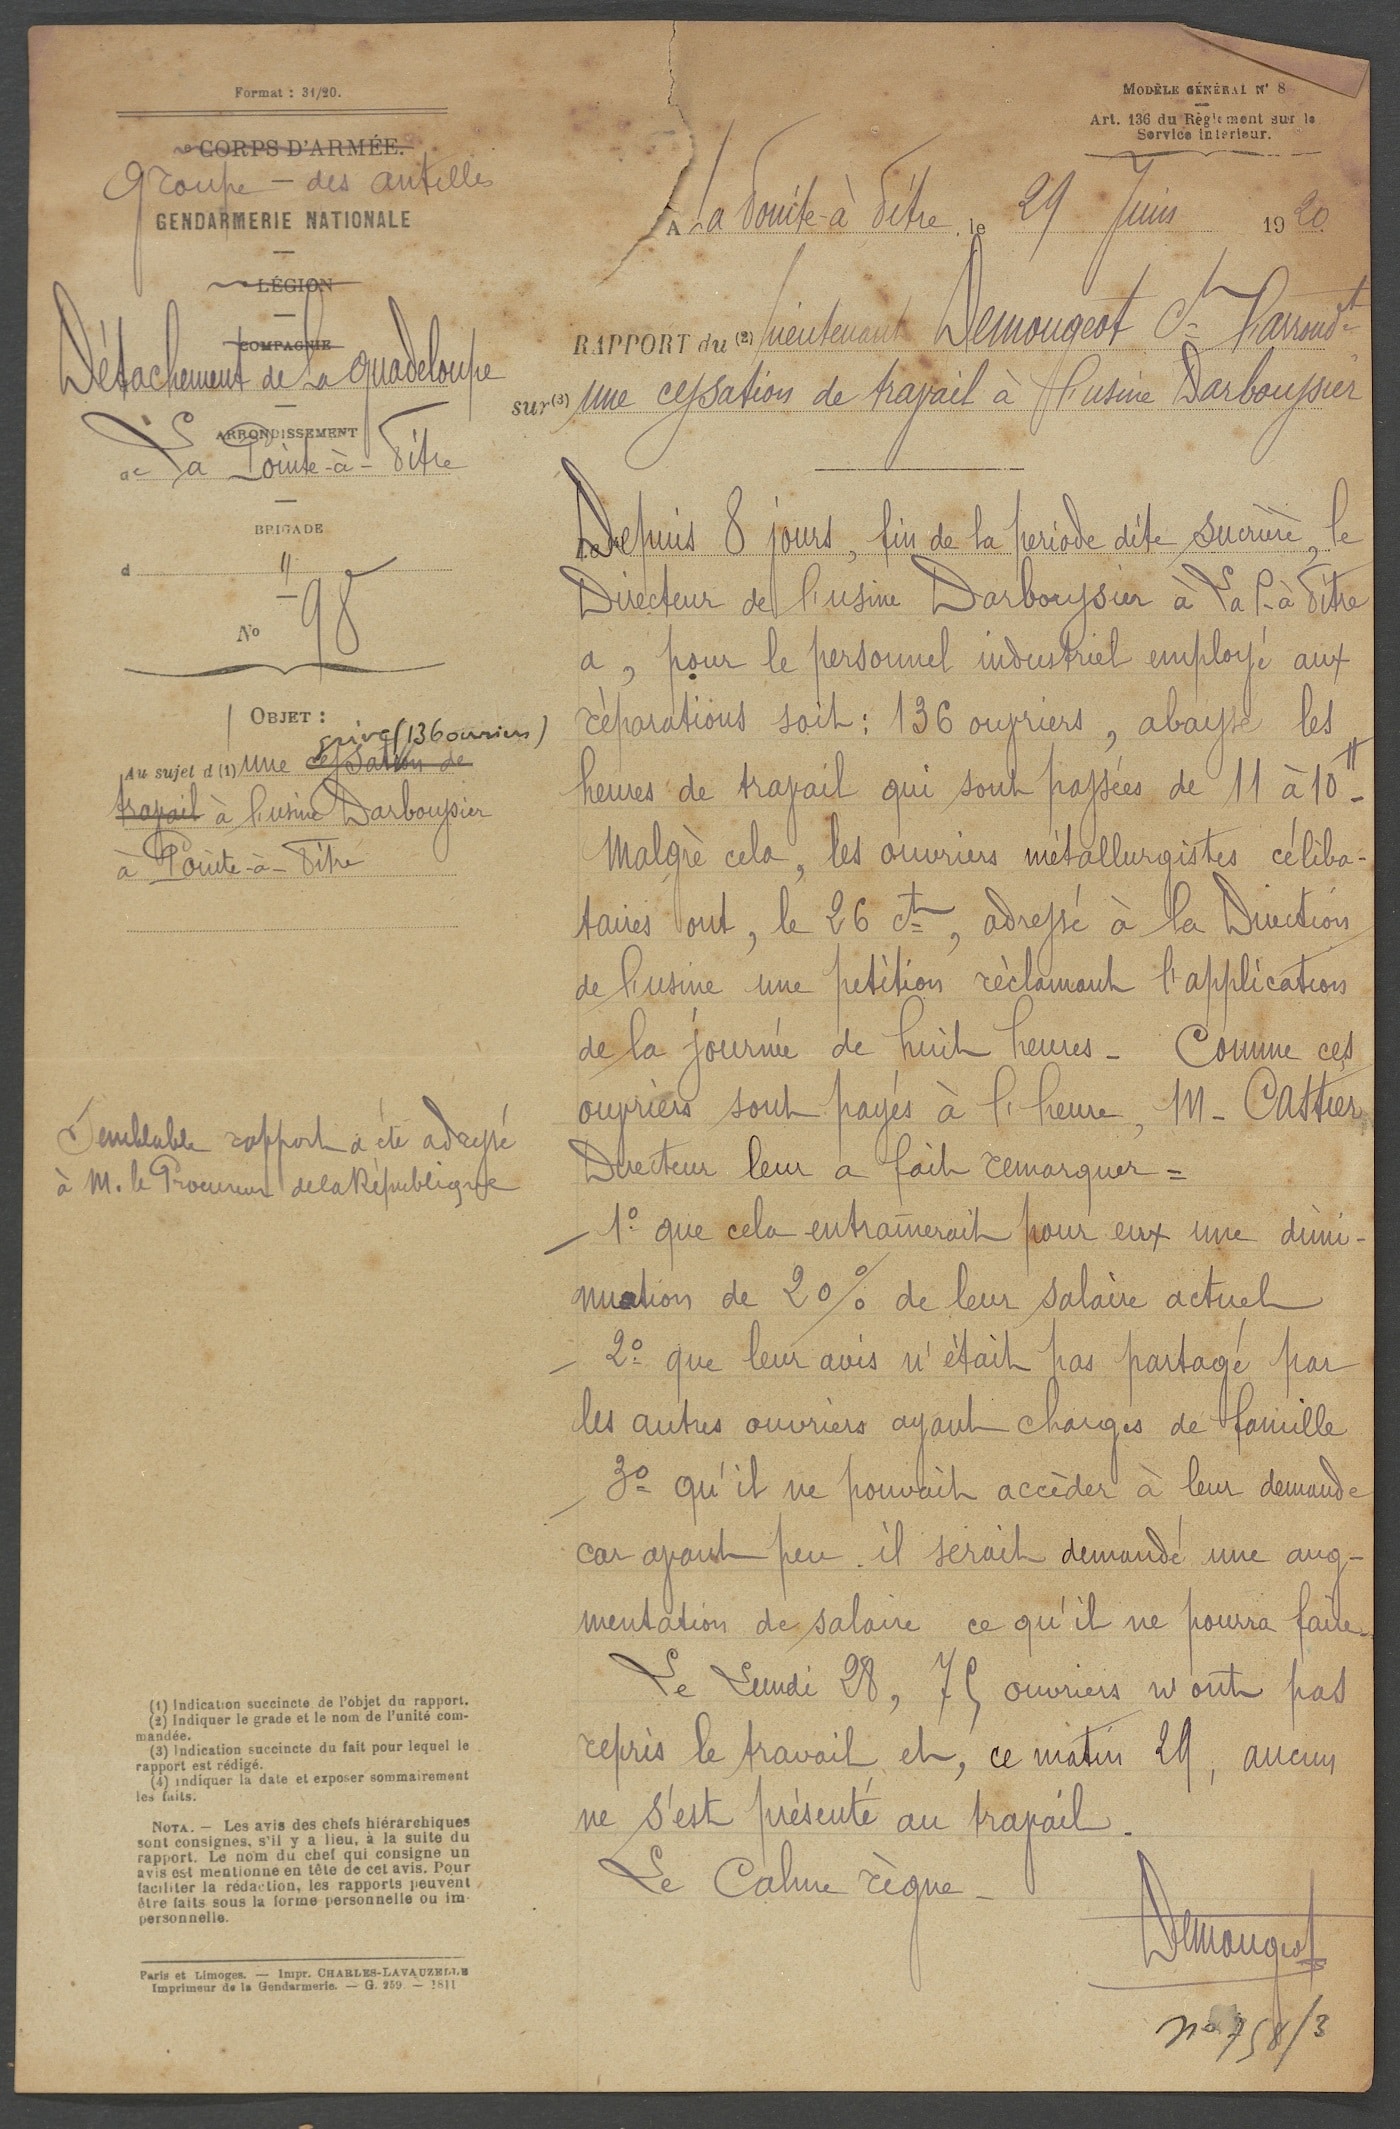 Format : 31/20.
CORPS D'ARMÉE.
Groupe - des antilles
GENDARMERIE NATIONALE
LÉGION
COMPAGNIE
Détachement de La Guadeloupe
ARRONDISSEMENT
de La Pointe-à-Pitre
BRIGADE
d "
No 98
OBJET :
grive (136 ouvriers)
Au sujet d (1) une cessation de
travail à l'usine Darboussier
à Pointe-à-Pitre
Semblable rapport a été adressé
à M. le Procureur de la République
(1) Indication succincte de l'objet du rapport.
(2) Indiquer le grade et le nom de l'unité com-
mandée.
(3) Indication succincte du fait pour lequel le
rapport est rédigé.
(4) Indiquer la date et exposer sommairement
les faits.
NOTA. — Les avis des chefs hiérarchiques
sont consignes, s'il y a lieu, à la suite du
rapport. Le nom du chef qui consigne un
avis est mentionne en tête de cet avis. Pour
faciliter la rédaction, les rapports peuvent
être faits sous la forme personnelle ou im-
personnelle.
Paris et Limoges. — Impr. CHARLES-LAVAUZELLE
Imprimeur de la Gendarmerie. — G. 259 — 1811
MODÈLE GÉNÉRAL N° 8
Art. 136 du Règlement sur le
Service intérieur.
A La Pointe-à-Pitre, le 29 Juin 1920
RAPPORT du (2) lieutenant Demougeot Ct l'arrondt
sur (3) une cessation de travail à l'usine Darboussier
Depuis 8 jours, fin de la periode dite sucrière, le
Directeur de l'usine Darboussier à La P-à Pitre
a, pour le personnel industriel employé aux
réparations soit : 136 ouvriers, abaissé les
heures de travail qui sont passées de 11 à 10"-
Malgrè cela, les ouvriers métallurgistes céliba-
taires ont, le 26 ct, adressé à la Direction
de l'usine une petition rèclamant l'application
de la journée de huit heures - Comme ces
ouvriers sont payés à l'heure, M - Castier
Directeur leur a fait remarquer =
- 1° que cela entrainerait pour eux une dimi-
nuation de 20% de leur salaire actuel
- 2° que leur avis n'était pas partagé par
les autres ouvriers ayant charges de famille
- 3° qu'il ne pouvait accèder à leur demande
car avant peu il serait demandé une aug-
mentation de salaire ce qu'il ne pourra faire -
Le Lundi 28, 75 ouvriers n'ont pas
repris le travail et, ce matin 29, aucun
ne s'est présenté au travail.
Le Calme règne -
Demougeot
n° 758/3